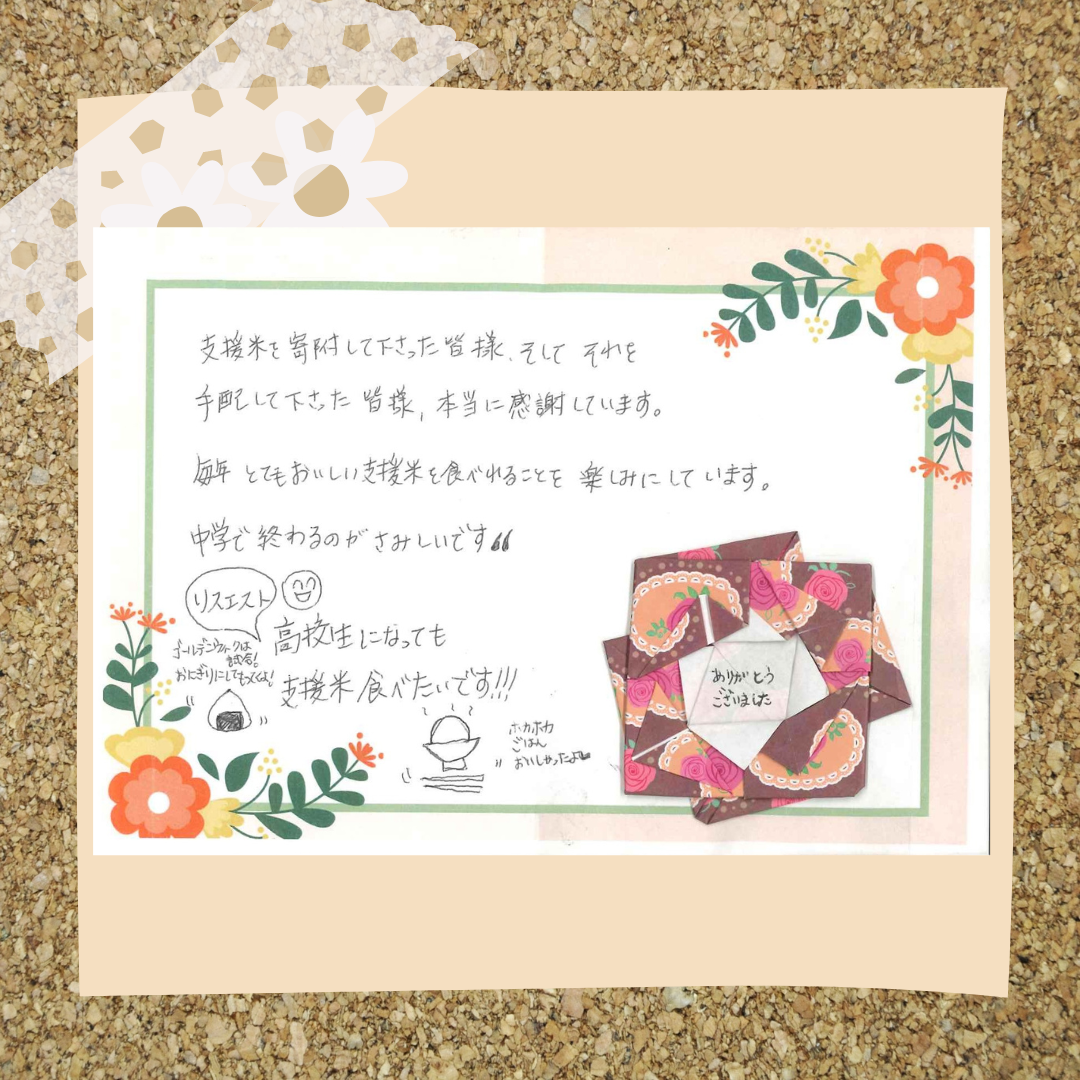 支援米を寄附して下さった皆様、そして それを
手配して下さった 皆様, 本当に感謝しています。
毎年 とてもおいしい支援米を食べれることを 楽しみにしています。
中学で 終わるのが さみしいです
リスエスト
高校生になっても
支援米 食べたいです!!!
ゴールデンウィークは
試合!
おにぎりにしてもってくよ!
ホカホカ
ごはん
おいしかったよ
ありがとう
ございました